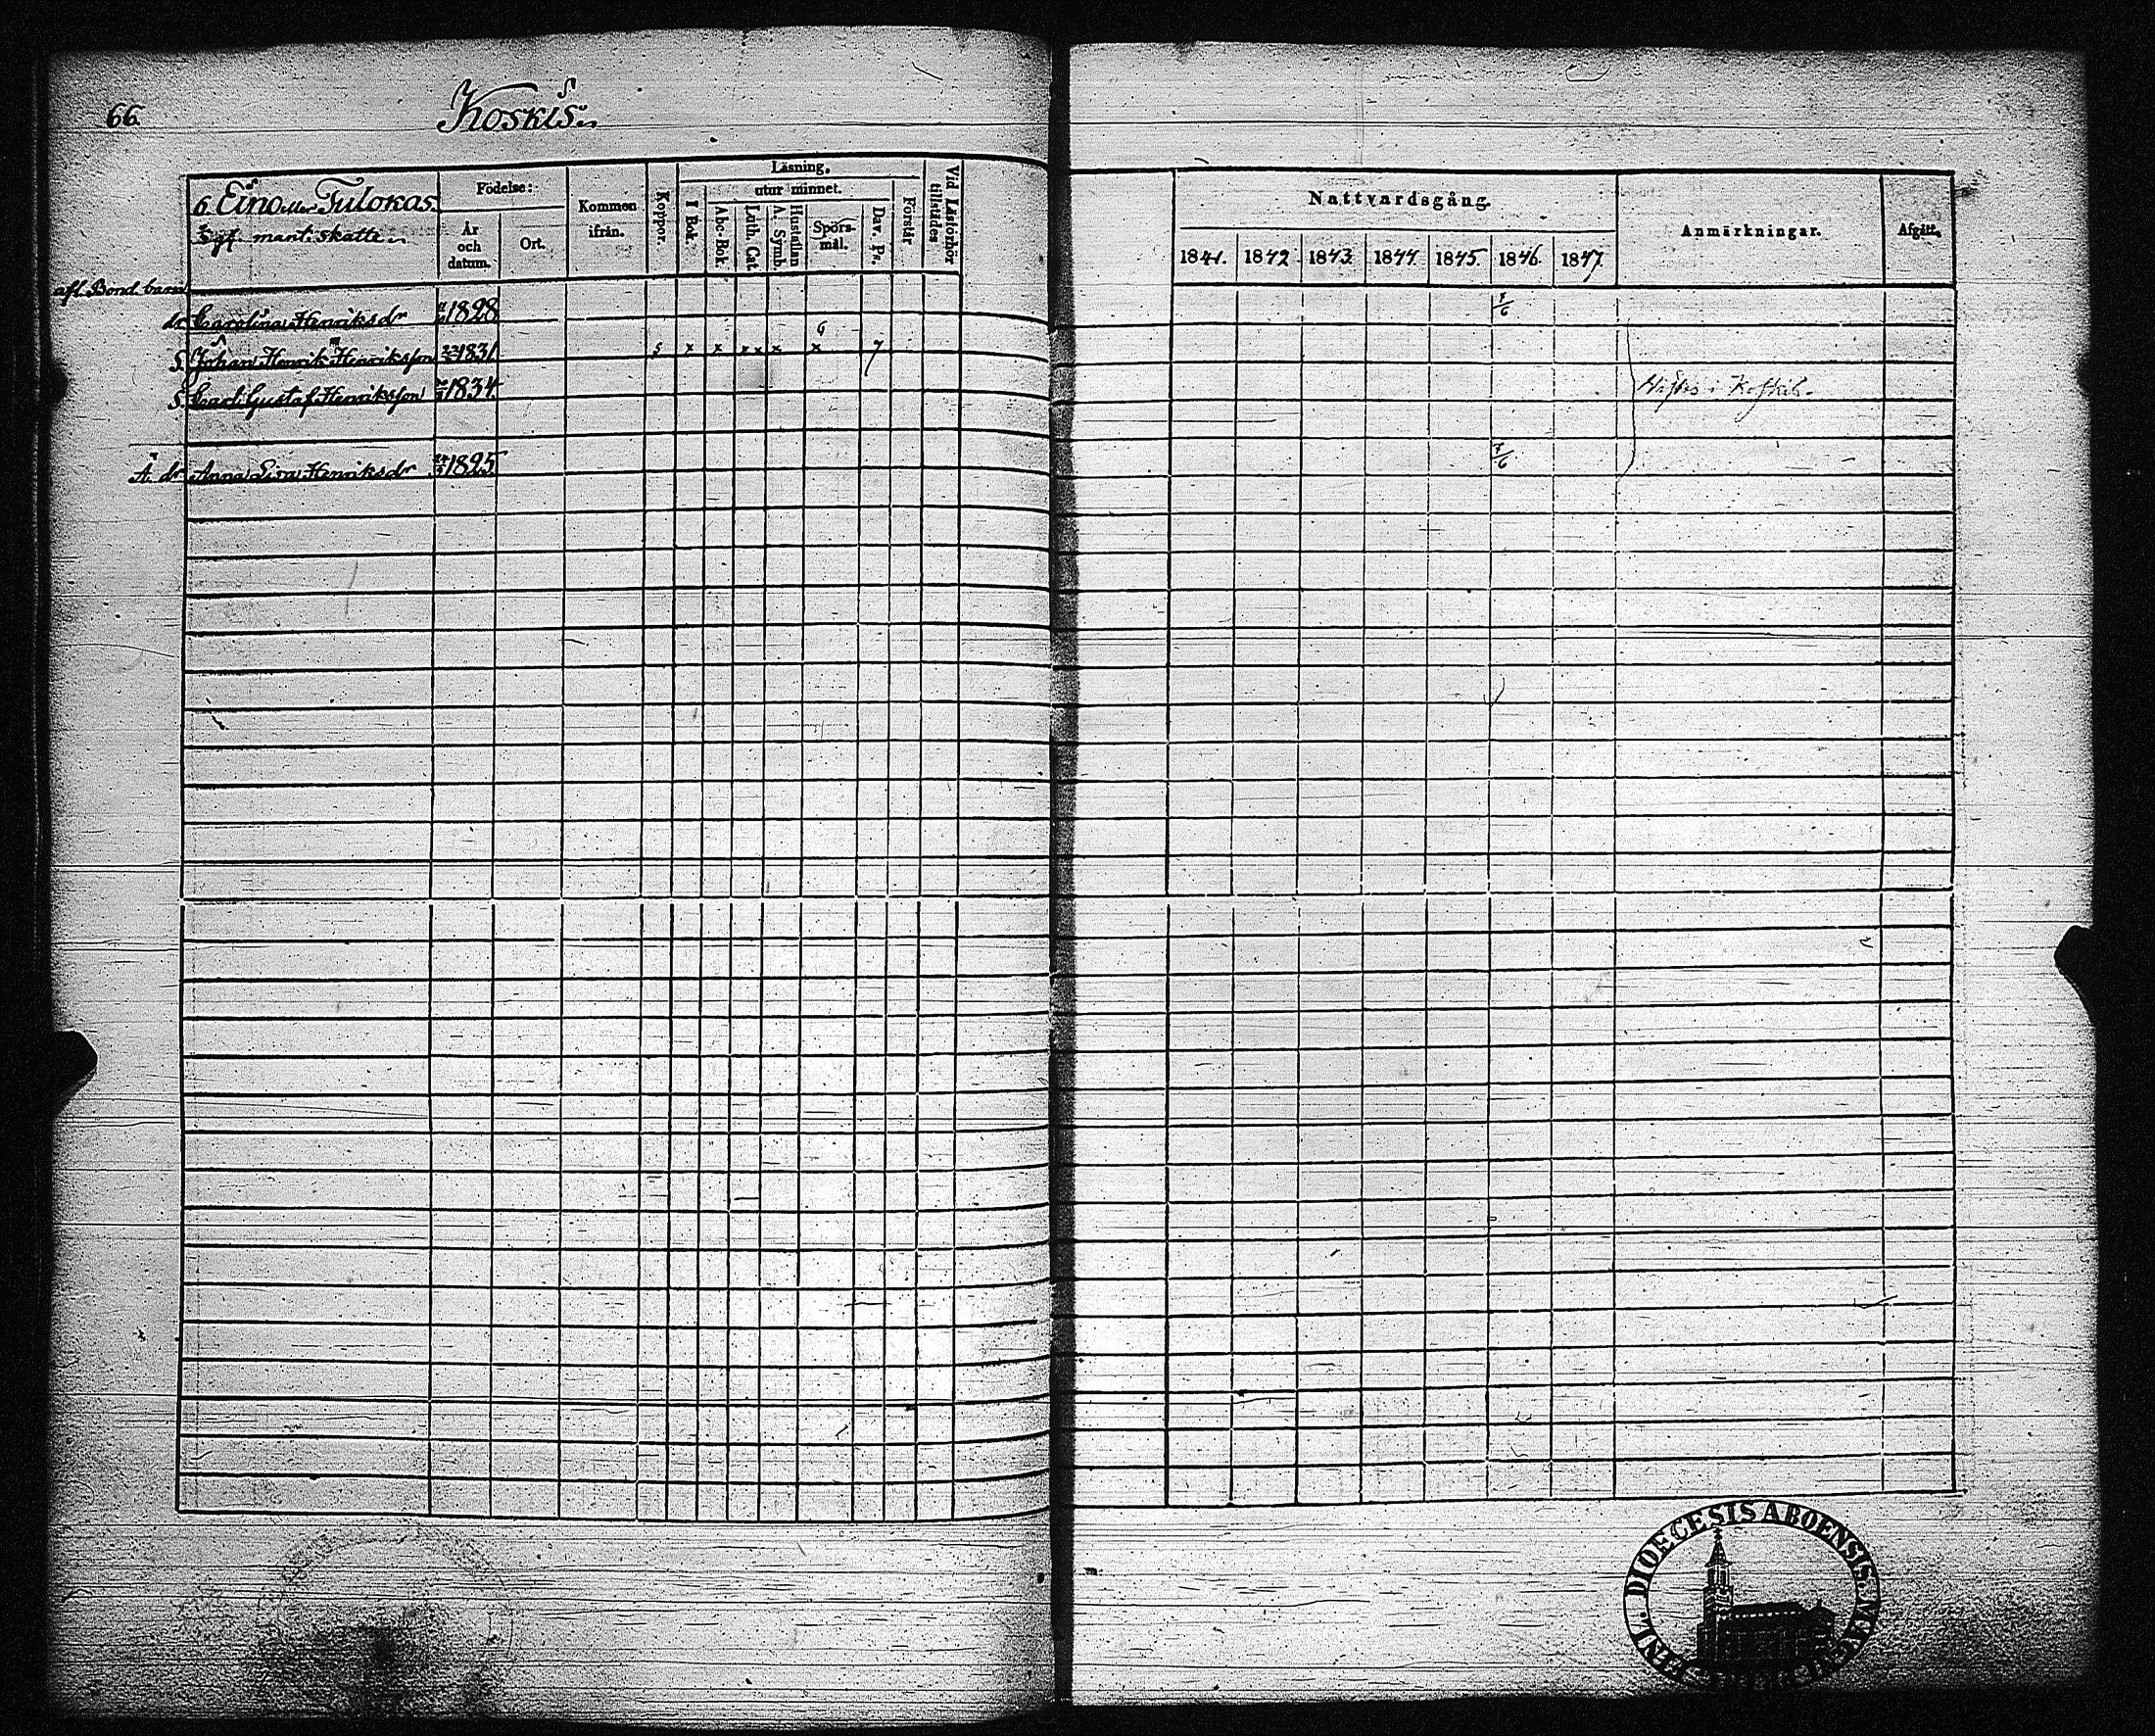 66.
Koskis
6. Eino eller Tulokas.
mant. skatte
Födelse:
År och datum.
Ort.
Kommen ifrån.
Koppor.
Läsning.
I Bok.
utur minnet.
Abc-Bok.
Luth. Cat.
A. Symb.
Hustaflan
Spörs-mål.
Dav. Ps.
Förstår
Vid Läsförhör tillstädes
Nattvardsgång.
1841. 1842 1843. 1844 1845. 1846. 1847.
Anmärkningar.
Afgått.
afl. Bond. barn
dr Carolina Henriksdr 1828 7/6
S. Johan Henrik Henriksson 1831 s x x x x x x 7
S. Carl Gustaf Henriksson 1834
i Koskis
Ä. dr Anna Lisa Henriksdr 1825 7/6
DIOECESIS ABOENSIS